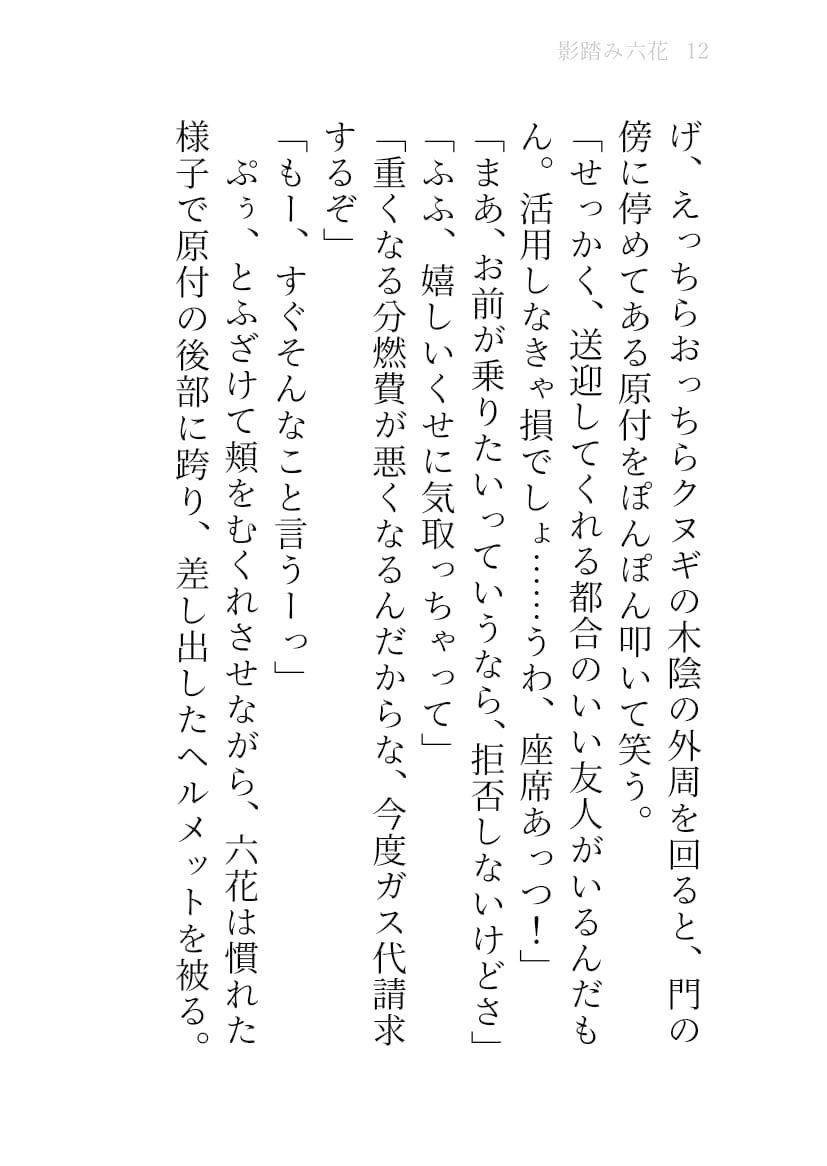 影踏み六花 12
げ、えっちらおっちらクヌギの木陰の外周を回ると、門の
傍に停めてある原付をぽんぽん叩いて笑う。
「せっかく、送迎してくれる都合のいい友人がいるんだも
ん。活用しなきゃ損でしょ……うわ、座席あっつ！」
「まあ、お前が乗りたいっていうなら、拒否しないけどさ」
「ふふ、嬉しいくせに気取っちゃって」
「重くなる分燃費が悪くなるんだからな、今度ガス代請求
するぞ」
「もー、すぐそんなこと言うーっ」
ぷぅ、とふざけて頬をむくれさせながら、六花は慣れた
様子で原付の後部に跨り、差し出したヘルメットを被る。